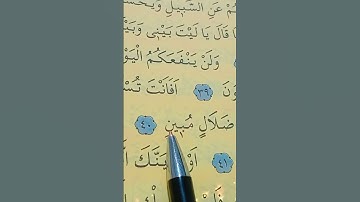 هُمْ عَنِ السَّبِيلِ وَيَحْسَ
قَالَ يَا لَيْتَ بَيْنِي وَبَيْ
وَلَنْ يَنْفَعَكُمُ الْيَوْ
ونَ ٣٩ اَفَاَنْتَ تُسْ
ضَلَالٍ مُبِينٍ ٤٠
اَوْ نُرِيَنَّكَ ٤١